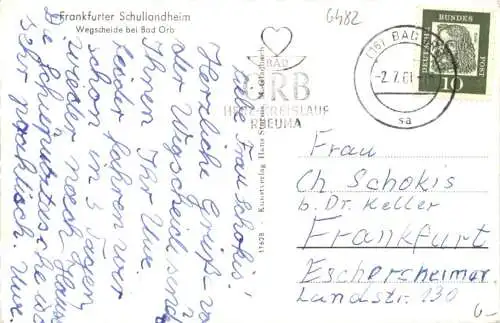 Frankfurter Schullandheim
Wegscheide bei Bad Orb
6482
Liebe Frau Schokis!
Herzliche Grüße von
der Wegscheide sendet
Ihnen Ihr Uwe.
Leider fahren wir
schon in 3 Tagen
wieder nach Hause.
Die Schuhputztasche ist
sehr praktisch. Uwe.
11628 Kunstverlag Hans Sturm, M. Gladbach
BAD
ORB
HERZ KREISLAUF
RHEUMA
(16) BAD ORB
-2.7.61-
sa
DEUTSCHE BUNDESPOST
10
Frau
Ch Schokis
b. Dr. Keller
Frankfurt
Eschersheimer
Landstr. 130